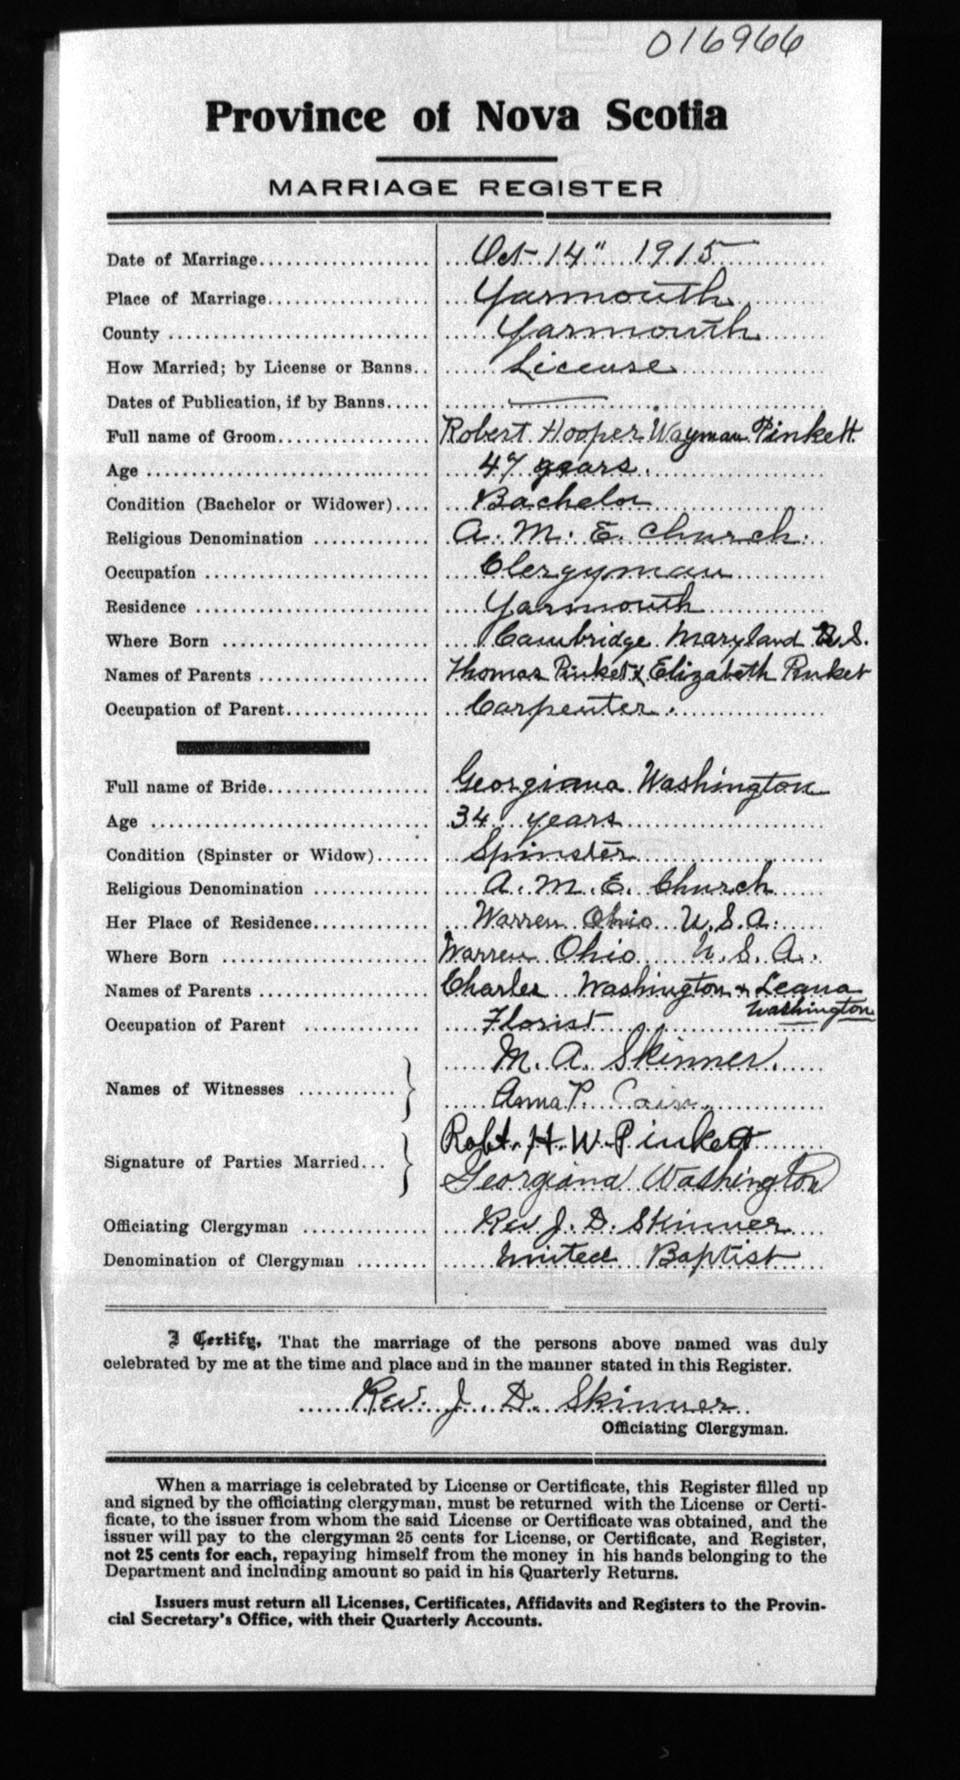 016966
Province of Nova Scotia
MARRIAGE REGISTER
Date of Marriage................... Oct 14" 1915
Place of Marriage.................. Yarmouth
County ............................. Yarmouth
How Married; by License or Banns.. License
Dates of Publication, if by Banns.....
Full name of Groom................. Robert Hooper Wayman Pinkett
Age ............................... 47 years.
Condition (Bachelor or Widower).... Bachelor
Religious Denomination ............. A. M. E. Church.
Occupation ......................... Clergyman
Residence .......................... Yarmouth
Where Born ........................ Cambridge Maryland U.S.
Names of Parents ................... Thomas Pinket & Elizabeth Pinket
Occupation of Parent................ Carpenter.
Full name of Bride.................. Georgiana Washington
Age ............................... 34 years
Condition (Spinster or Widow)...... Spinster
Religious Denomination ............. A. M. E. Church
Her Place of Residence............. Warren Ohio U.S.A.
Where Born ........................ Warren Ohio U.S.A.
Names of Parents ................... Charles Washington & Leana
Washington
Occupation of Parent ............. Florist
M. A. Skinner.
Names of Witnesses ...........
Anna P.
Robt. H. W. Pinkett
Signature of Parties Married...
Georgiana Washington
Officiating Clergyman ............. Rev J. D. Skinner
Denomination of Clergyman ........ United Baptist
I Certify, That the marriage of the persons above named was duly
celebrated by me at the time and place and in the manner stated in this Register.
Rev. J. D. Skinner
Officiating Clergyman.
When a marriage is celebrated by License or Certificate, this Register filled up
and signed by the officiating clergyman, must be returned with the License or Certi-
ficate, to the issuer from whom the said License or Certificate was obtained, and the
issuer will pay to the clergyman 25 cents for License, or Certificate, and Register,
not 25 cents for each, repaying himself from the money in his hands belonging to the
Department and including amount so paid in his Quarterly Returns.
Issuers must return all Licenses, Certificates, Affidavits and Registers to the Provin-
cial Secretary's Office, with their Quarterly Accounts.